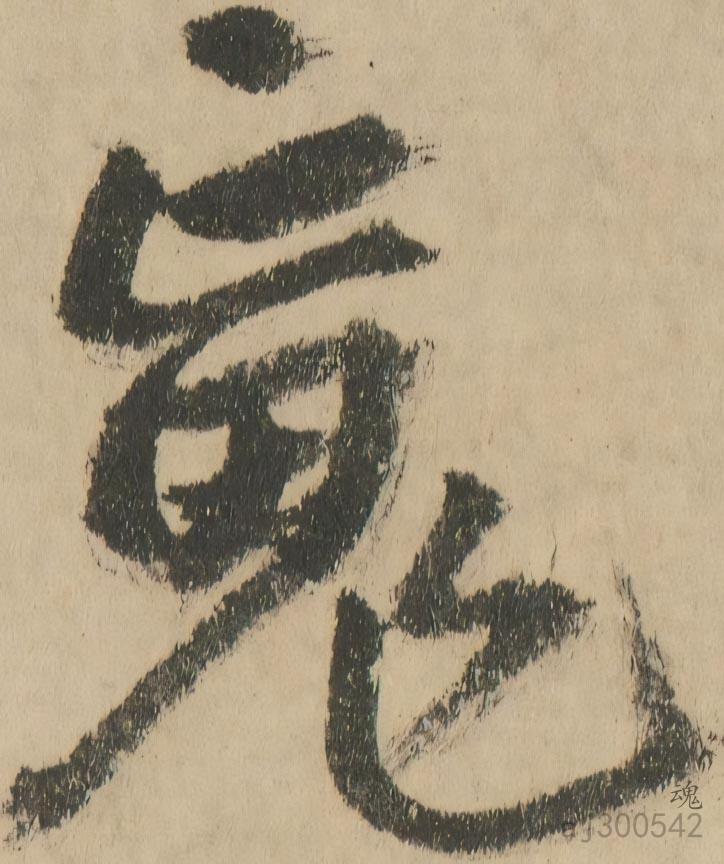 魂
魂
aj300542